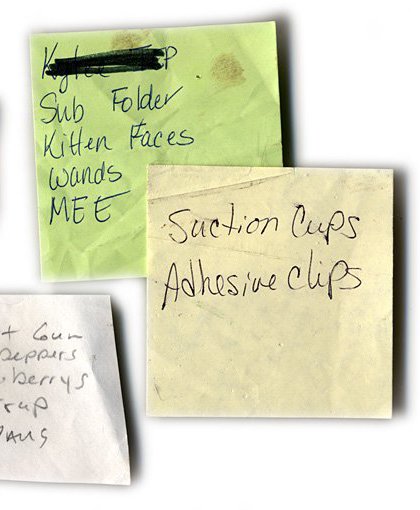 Sub Folder
Kitten Faces
wands
MEE
Suction Cups
Adhesive clips
+ Gum
peppers
berrys